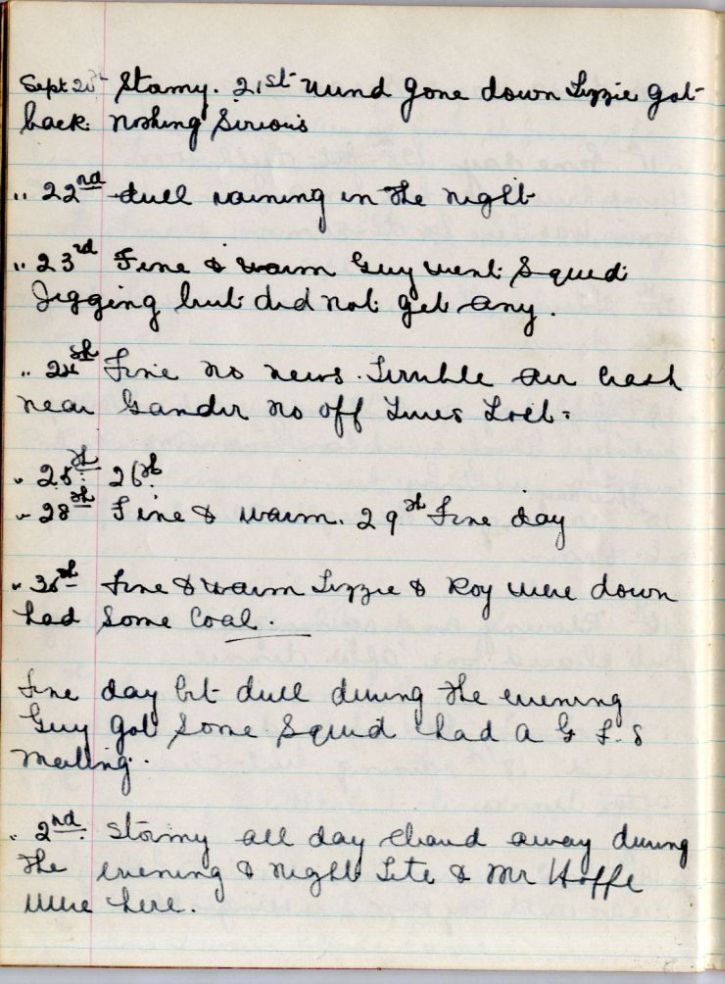 Sept 20th Stormy. 21st wind gone down Lizzie got
back nothing Sirious
" 22nd dull raining in the night
" 23rd Fine & warm Guy went Squid
Jigging but did not get any.
" 24th Fine no news. Terrible air crash
near Gander no off Lives Lost
" 25th 26th
" 28th Fine & warm. 29th Fine day
" 30th Fine & warm Lizzie & Roy were down
had some Coal.
Fine day bit dull during the evening
Guy got some Squid had a G F. S
meeting.
" 2nd. Stormy all day cleard away during
the evening & night & Mr Hoffe
were here.